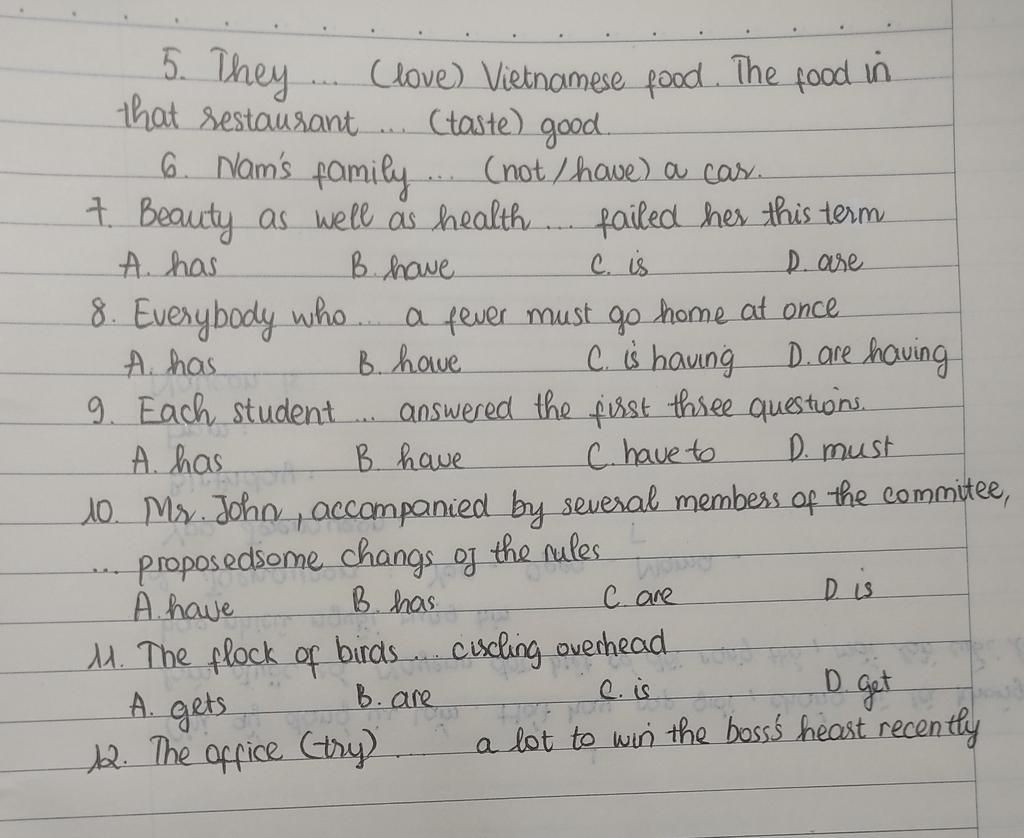 5. They ... (love) Vietnamese food. The food in
that restaurant ... (taste) good.
6. Nam's family ... (not/have) a car.
7. Beauty as well as health ... failed her this term
A. has B. have C. is D. are
8. Everybody who ... a fever must go home at once
A. has B. have C. is having D. are having
9. Each student ... answered the first three questions.
A. has B. have C. have to D. must
10. Mr. John, accompanied by several members of the commitee,
... proposedsome changs of the rules
A. have B. has C. are D is
11. The flock of birds ... circling overhead
A. gets B. are C. is D. get
12. The office (try) ... a lot to win the boss's heart recently